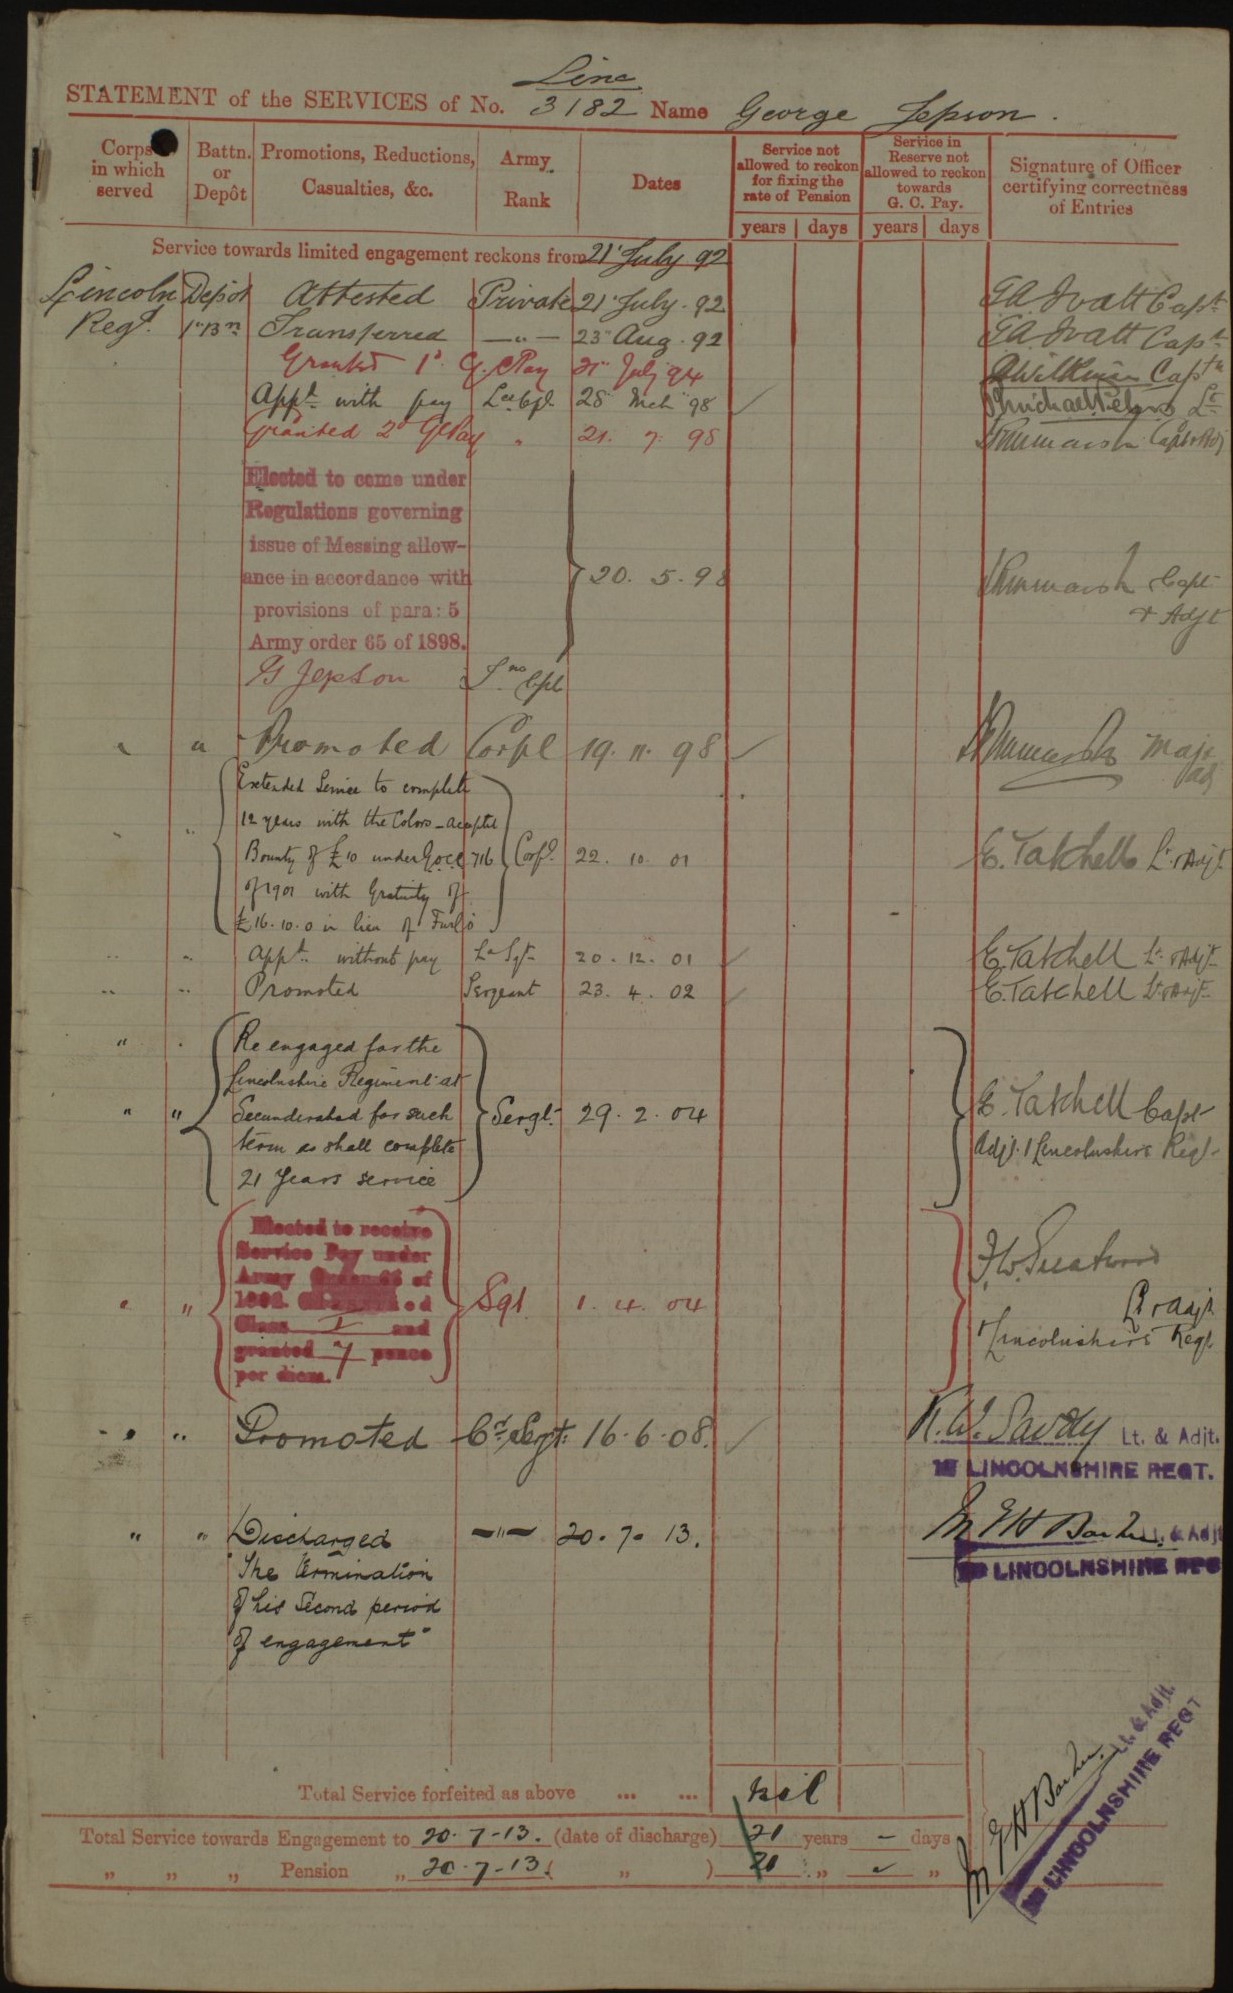 Linc
STATEMENT of the SERVICES of No. 3182 Name George Jepson.
Corps in which served
Battn. or Depôt
Promotions, Reductions, Casualties, &c.
Army Rank
Dates
Service not allowed to reckon for fixing the rate of Pension
Service in Reserve not allowed to reckon towards G. C. Pay.
Signature of Officer certifying correctness of Entries
years days years days
Service towards limited engagement reckons from 21 July. 92
Lincoln Depôt Attested Private 21 July. 92 Capt
Regt. 1st Bn Transferred —"— 23 Aug. 92 Capt
Granted 1st G.C Pay 21 July 94 Captn
Appd with pay Lce Cpl. 28 Mch 98 Lt
Granted 2d GC Pay " 21. 7. 98
Elected to come under
Regulations governing
issue of Messing allow-
ance in accordance with
provisions of para: 5
Army order 65 of 1898.
20. 5. 98 Capt
& Adjt
G Jepson Cpl
" " Promoted Corpl 19. 11. 98 Maj
Extended Service to complete
12 years with the Colors - accepted
Bounty of £10 under 716
of 1901 with Gratuity of
£16.10.0 in lieu of Furlo
Corpl. 22. 10. 01 E. Tatchell Lt. & Adjt.
" " Appd. without pay Le Sgt 20. 12. 01 E. Tatchell Lt. & Adjt
" " Promoted Sergeant 23. 4. 02 E. Tatchell Lt. & Adjt
" Re engaged for the
Lincolnshire Regiment at
" " Secunderabad for such Sergt. 29. 2. 04 E. Tatchell Capt
term as shall complete Adjt. 1 Lincolnshire Regt
21 Years service
Elected to receive
Service Pay under
Army of
Class I and
granted 7 pence
per diem.
" " Sgt. 1. 4. 04
Lt & Adjt
1 Lincolnshire Regt
" " Promoted Cr. Sergt: 16. 6. 08. Lt. & Adjt.
LINCOLNSHIRE REGT.
" " Discharged —"— 20. 7. 13. Lt. & Adjt
LINCOLNSHIRE REG
"The termination
of his second period
of engagement"
Total Service forfeited as above ... ... nil
Total Service towards Engagement to 20. 7-13. (date of discharge) 21 years — days
" " " Pension " 20. 7-13. ( " ) 21 " "
Lt. & Adjt.
LINCOLNSHIRE REGT